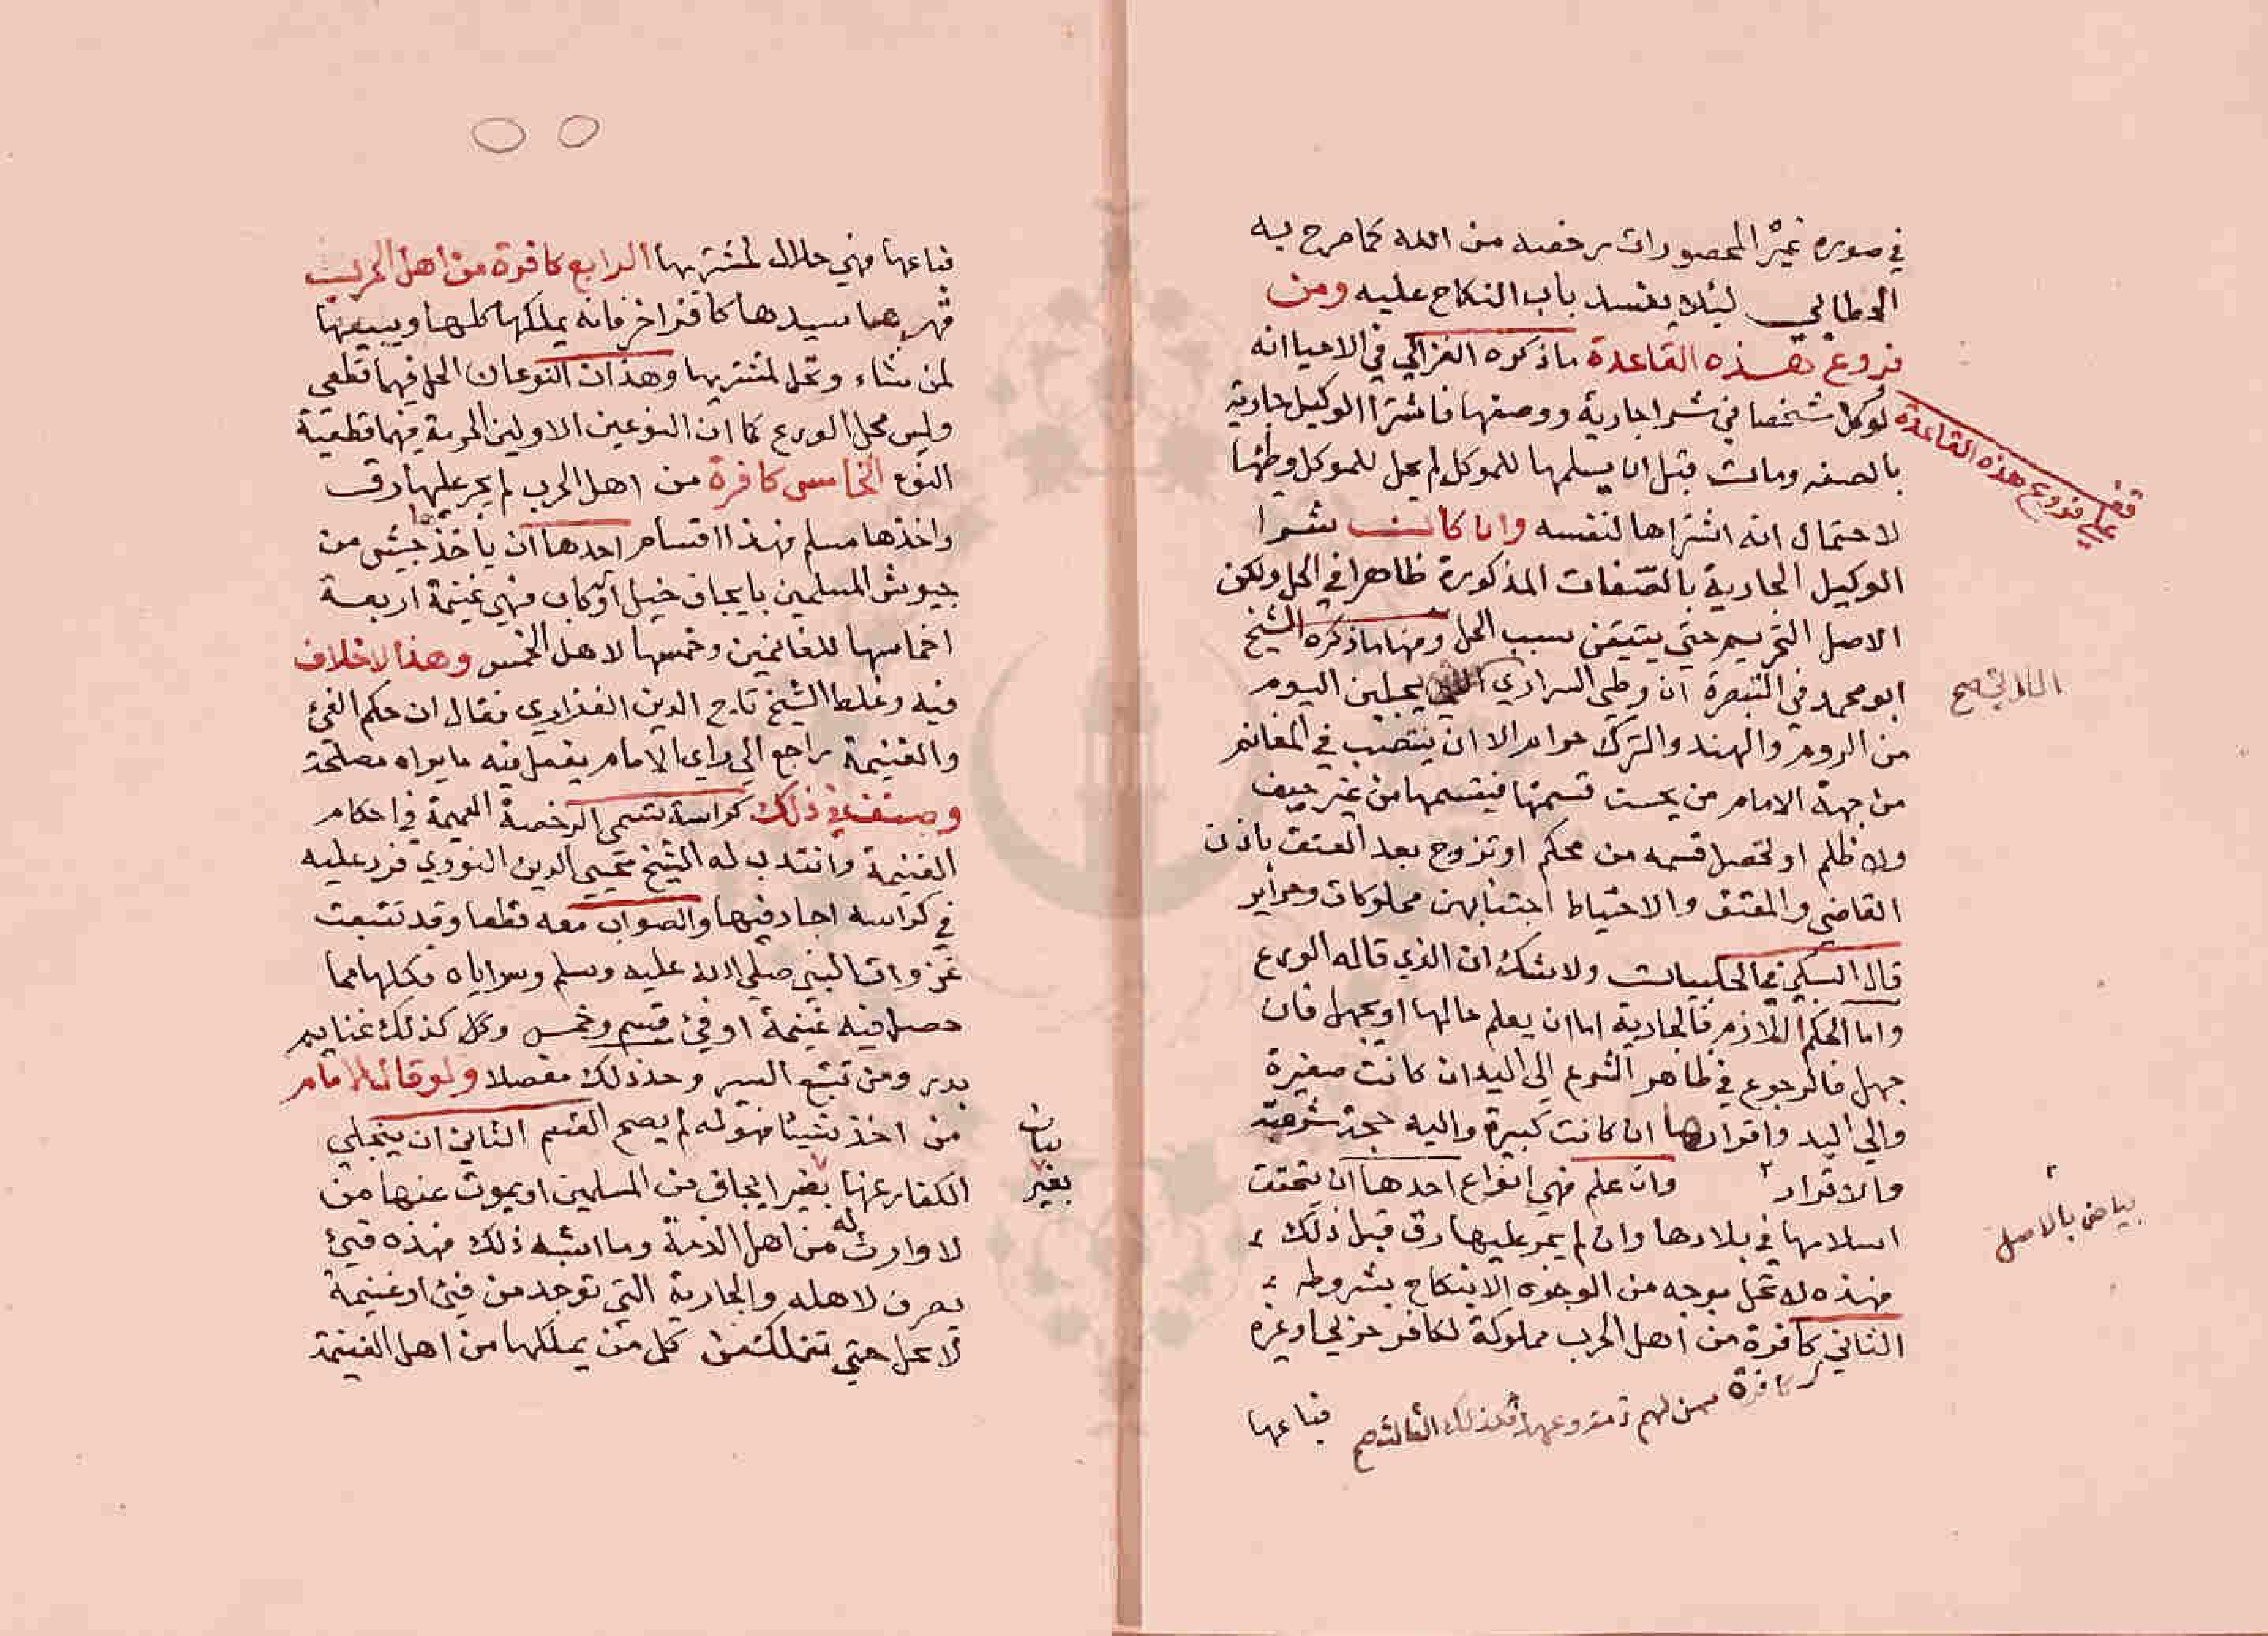 في صورة غير المحصورات رخصة من الله كما صرح به
الخطابي ليلا يفسد باب النكاح عليه ومن
فروع هذه القاعدة ماذكره الغزالي في الاحيا انه
لو وكل شخصا في شرا جارية ووصفها فاشترا الوكيل جارية
بالصفه ومات قبل ان يسلمها للموكل لم يحل للموكل وطئها
لاحتمال انه اشتراها لنفسه وان كانت شرا
الوكيل الجارية بالصفات المذكورة ظاهرا في الحل ولكن
الاصل التحريم حتي يتيقن سبب الحل ومنها ماذكره الشيخ
ابو محمد في التبصرة ان وطي السراري يجلبن اليوم
من الروم والهند والترك حرام الا ان ينتصب في المغانم
من جهة الامام من يحسن قسمتها فيقسمها من غير حيف
ولا ظلم او تحصل قسمه من محكم او تزوج بعد العتق باذن
القاضي والمعتق والاحتياط اجتنابهن مملوكات وحراير
قال السبكي في الحلبيات ولاشك ان الذي قاله الورع
واما الحكم اللازم فالجارية اما ان يعلم حالها او يجهل فان
جهل فالرجوع في ظاهر الشرع الي اليد ان كانت صغيرة
والي اليد واقرارها ان كانت كبيرة واليد حجة شرعية
والاقرار وان علم فهي انواع احدها ان يتحقق
اسلامها في بلادها وان لم يجر عليها رق قبل ذلك
فهذه لا تحل بوجه من الوجوه الا بنكاح بشروطه
الثاني كافرة من اهل الحرب مملوكة لكافر حربي او غيره
كافرة ممن لهم ذمة وعهد فكذلك الثالث صح
فباعها
قف
علي فروع هذه القاعدة
اللاتي صح
بياض بالاصل
فباعها فهي حلال لمشتريها الرابع كافرة من اهل الحرب
قهرها سيدها كافر اخر فانه يملكها كلها ويبيعها
لمن شاء وتحل لمشتريها وهذان النوعان الحل فيهما قطعي
وليس محل الورع كما ان النوعين الاولين الحرمة فيهما قطعية
النوع الخامس كافرة من اهل الحرب لم يجر عليها رق
واخذها مسلم فهذا اقسام احدها ان ياخذها جيش من
جيوش المسلمين بايجاف خيل او ركاب فهي غنيمة اربعة
اخماسها للغانمين وخمسها لاهل الخمس وهذا لاخلاف
فيه وغلط الشيخ تاج الدين الفزاري فقال ان حكم الفئ
والغنيمة راجع الي راي الامام يفعل فيه مايراه مصلحة
وصنف في ذلك كراسة تسمي الرخصة العميمة في احكام
الغنيمة وانتدب له الشيخ محيي الدين النووي فرد عليه
في كراسه اجاد فيها والصواب معه قطعا وقد تتبعت
غزوات النبي صلي الله عليه وسلم وسراياه فكلها مما
حصل فيه غنيمة او فئ قسم وخمس وكل كذلك غنايم
بدر ومن تتبع السير وجد ذلك مفصلا ولو قال الامام
من اخذ شيئا فهو له لم يصح القسم الثاني ان ينجلي
الكفار عنها بغير ايجاف من المسلمين او يموت عنها من
لا وارث له من اهل الذمة وما اشبه ذلك فهذه فئ
يصرف لاهله والجارية التي توجد من فئ او غنيمة
لا تحل حتي تتملك من كل من يملكها من اهل الغنيمة
بيان
بغير